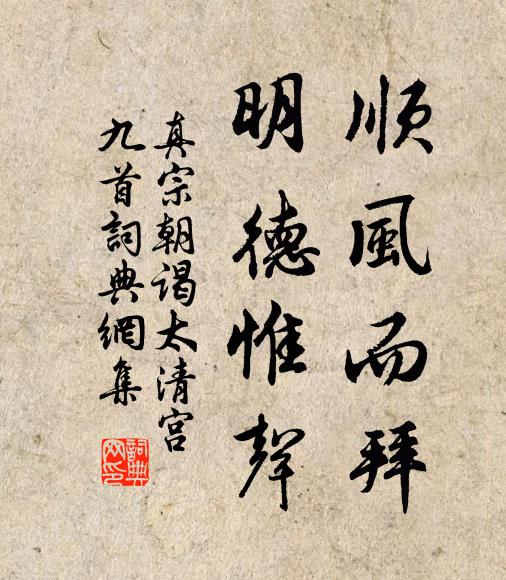 順風而拜
明德惟聲
真宗朝謁太清宮
九首詞典網集
詞典
网印